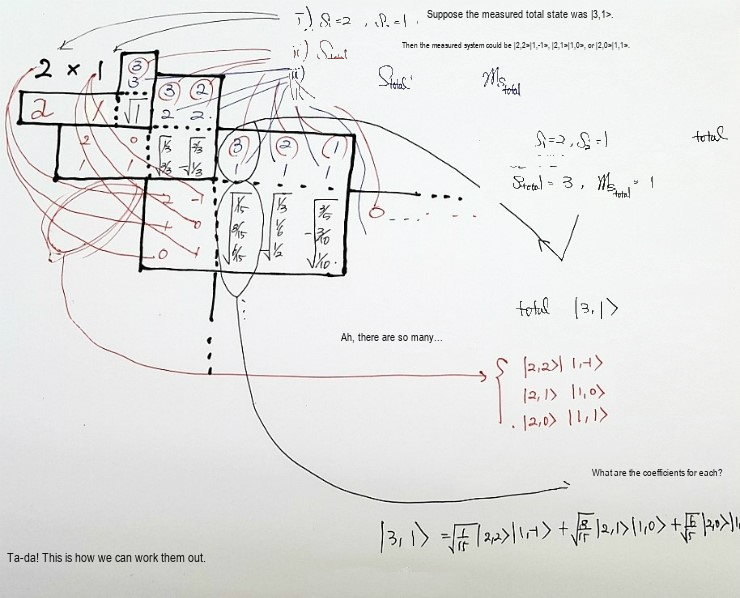 i) S₁=2 , S₂=1 . Suppose the measured total state was |3,1>.
ii) S total Then the measured system could be |2,2>|1,-1>, |2,1>|1,0>, or |2,0>|1,1>.
iii) S total M s total
2 × 1 3
3 3 2
2 1 √1 2 2
2 0 1/3 2/3 3 2 1
1 1 2/3 -√1/3 1 1 1
2 -1 1/15 1/3 3/5
1 0 8/15 1/6 -3/10
0 1 √6/15 -√1/2 √1/10
0
S₁=2, S₂=1 total
S total = 3 , M s total = 1
total |3,1>
Ah, there are so many...
|2,2>|1,-1>
|2,1> |1,0>
|2,0> |1,1>
What are the coefficients for each?
|3,1> = √1/15 |2,2>|1,-1> + √8/15 |2,1>|1,0> + √6/15 |2,0>|1,
Ta-da! This is how we can work them out.